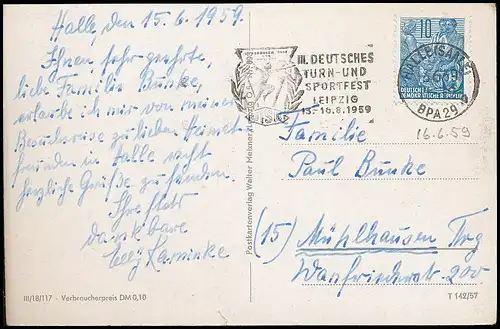 Halle, den 15.6.1959.
Ihnen, sehr geehrte,
liebe Familie Bunke,
erlaube ich mir von meiner
Besuchsreise zu lieben Heimat-
freunden in Halle recht
herzliche Grüße zu senden.
Ihre stets
dankbare
Kaminke
III/18/117 - Verbraucherpreis DM 0,10
Postkartenverlag Walter Meissner K.
III. DEUTSCHES
TURN- UND
SPORTFEST
LEIPZIG
13.-16.8.1959
10
DEUTSCHE
DEMOKRATISCHE REPUBLIK
HALLE (SAALE)
BPA 29
16.6.59
Familie
Paul Bunke
(15) Mühlhausen Thrg
Wanfriederstr. 200
T 142/57